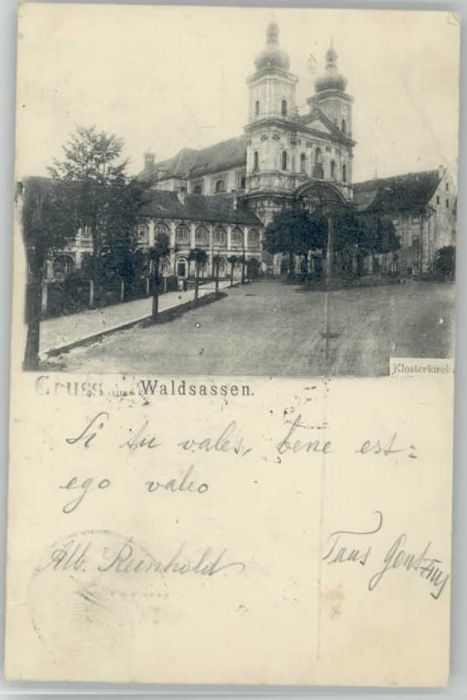 Klosterkirche
Gruss aus Waldsassen.
Si tu vales, bene est:
ego valeo
Alb. Reinhold
Tuus